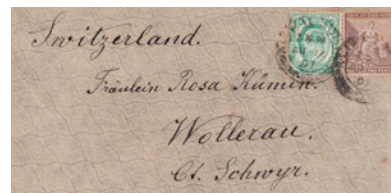 Switzerland.
Fräulein Rosa Kümin.
Wollerau.
Ct. Schwyz.